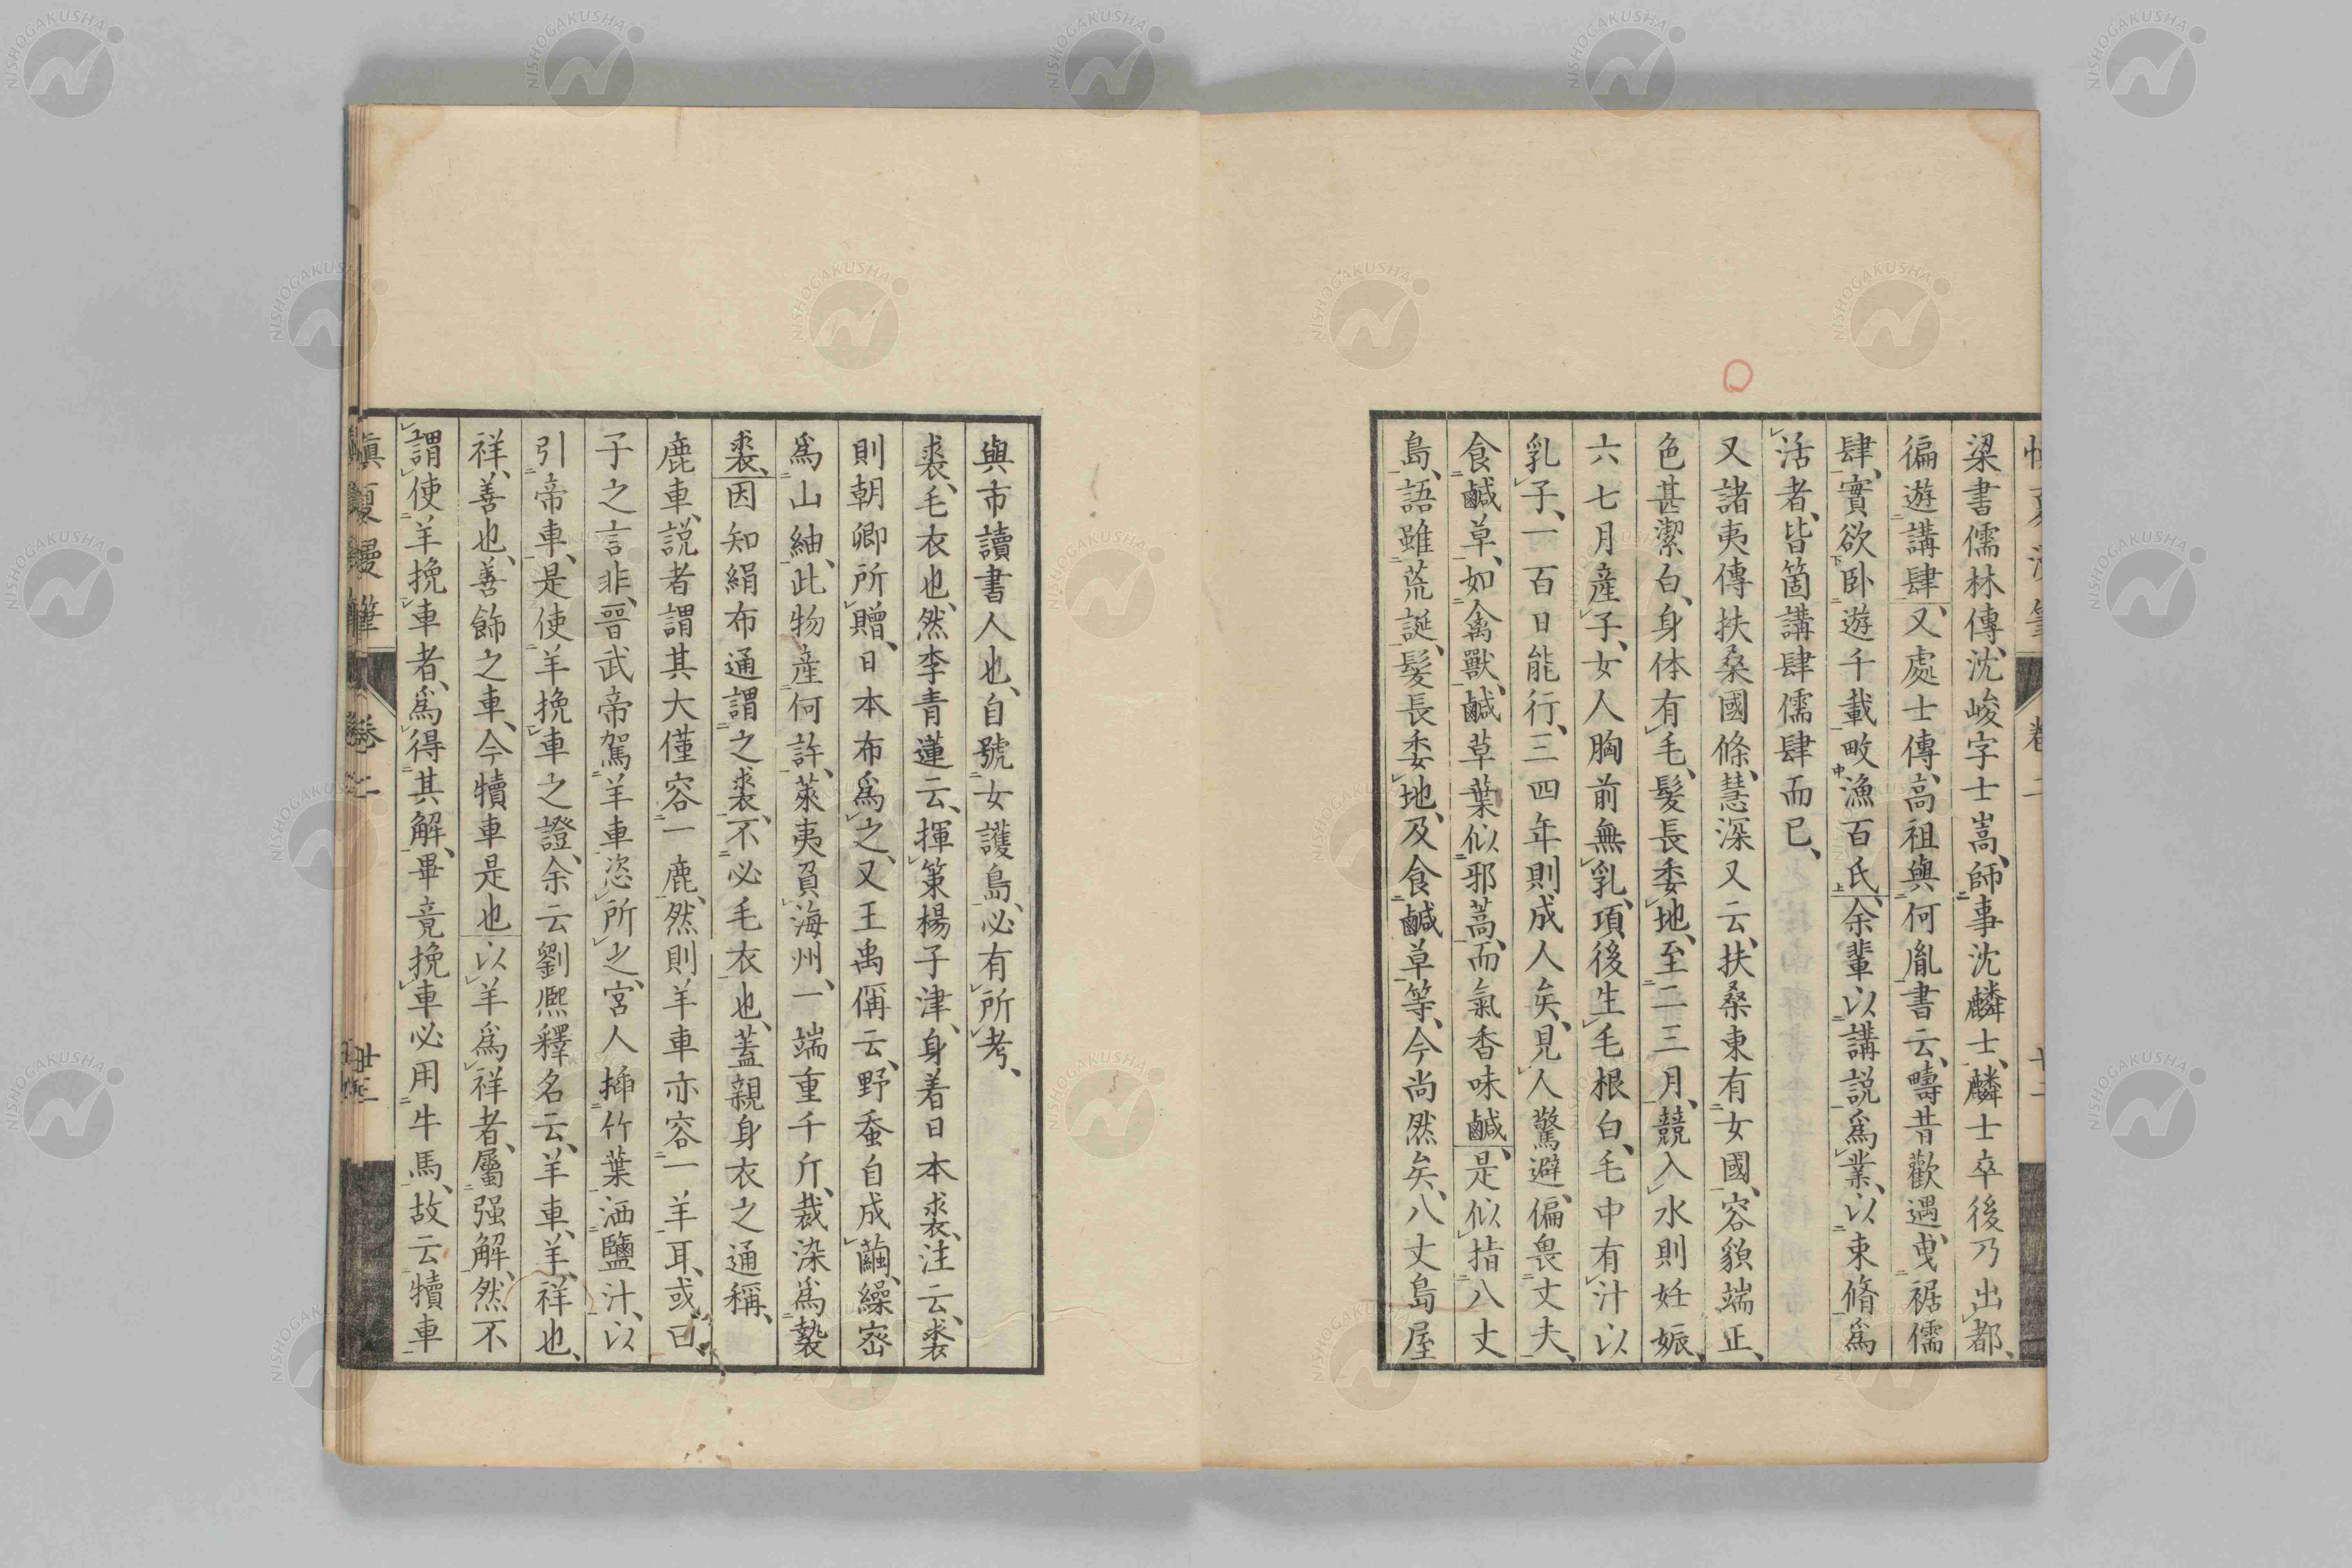 梁書儒林傳、沈峻字士嵩、師事沈麟士、麟士卒後乃出都、
徧遊講肆、又處士傳、高祖與何胤書云、疇昔歡遇、曳裾儒
肆、實欲臥遊千載畋漁百氏、余輩以講説爲業、以束脩爲
活者、皆箇講肆儒肆而已、
又諸夷傳扶桑國條、慧深又云、扶桑東有女國、容貌端正、
色甚潔白、身体有毛、髮長委地、至二三月、競入水則妊娠、
六七月産子、女人胸前無乳、項後生毛根白、毛中有汁以
乳子、一百日能行、三四年則成人矣、見人驚避、偏畏丈夫、
食鹹草、如禽獸、鹹草葉似邪蒿、而氣香味鹹、是似指八丈
島、語雖荒誕、髮長委地、及食鹹草等、今尚然矣、八丈島屋
與市讀書人也、自號女護島、必有所考、
裘、毛衣也、然李青蓮云、揮策楊子津、身着日本裘、注云、裘
則朝卿所贈、日本布爲之、又王禹偁云、野蚕自成繭、繰䌤
爲山紬、此物産何許、萊夷負海州、一端重千斤、裁染爲褺
裘、因知絹布通謂之裘、不必毛衣也、蓋親身衣之通稱、
鹿車、説者謂其大僅容一鹿、然則羊車亦容一羊耳、或曰、
子之言非、晉武帝駕羊車恣所之、宮人揷竹葉洒鹽汁、以
引帝車、是使羊挽車之證、余云劉熈釋名云、羊車、羊、祥也、
祥、善也、善飾之車、今犢車是也、以羊爲祥者、屬强解、然不
謂使羊挽車者、爲得其解、畢竟挽車必用牛馬、故云犢車
慎夏漫筆 卷二